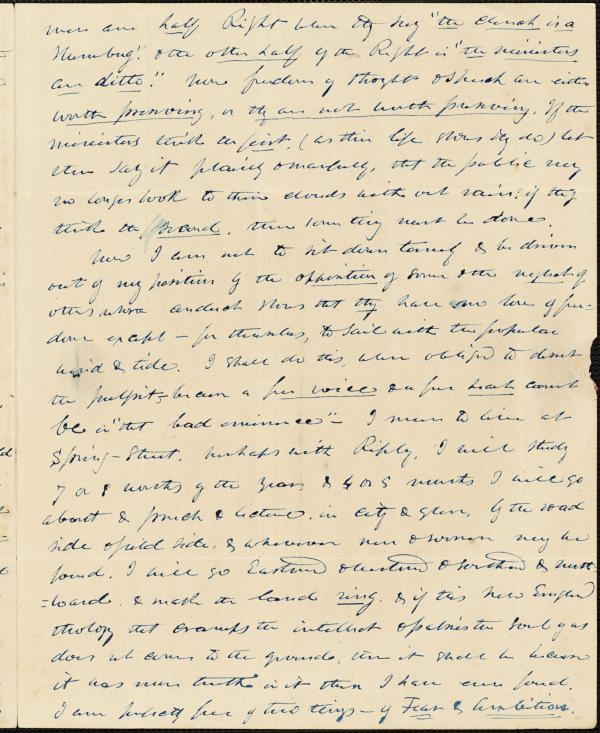 men are half Right when they say "the church is a
Humbug". & the other half of the Right is "the ministers
are ditto". Now freedom of thought & speech are either
worth preserving, or they are not worth preserving. If the
ministers think the first, (as their life shows they do) let
them say it plainly & manfully, that the public may
no longer look to their clouds without rain; if they
think the second, then something must be done.
Now I am not to sit down tamely & be driven
out of my position by the opposition of some & the neglect of
others whose conduct shows that they have no love of free-
dom except — for themselves, to sail with the popular
wind & tide. I shall do this, when obliged to desert
the pulpit, because a free voice & a free heart cannot
be in "that bad eminence" — I mean to live at
Spring-Street, perhaps with Ripley, I will study
7 or 8 months of the year, & 4 or 5 months I will go
about & preach & lecture, in city & glen, by the road
side & field side, & wherever men & women may be
found. I will go Eastward & westward & southward & north
=ward. & make the land ring. & if this New England
theology that cramps the intellect & palsies the soul of us
does not come to the ground, then it shall be because
it has more truth in it than I have ever found.
I am perfectly free of two things — of Fear & Ambition.